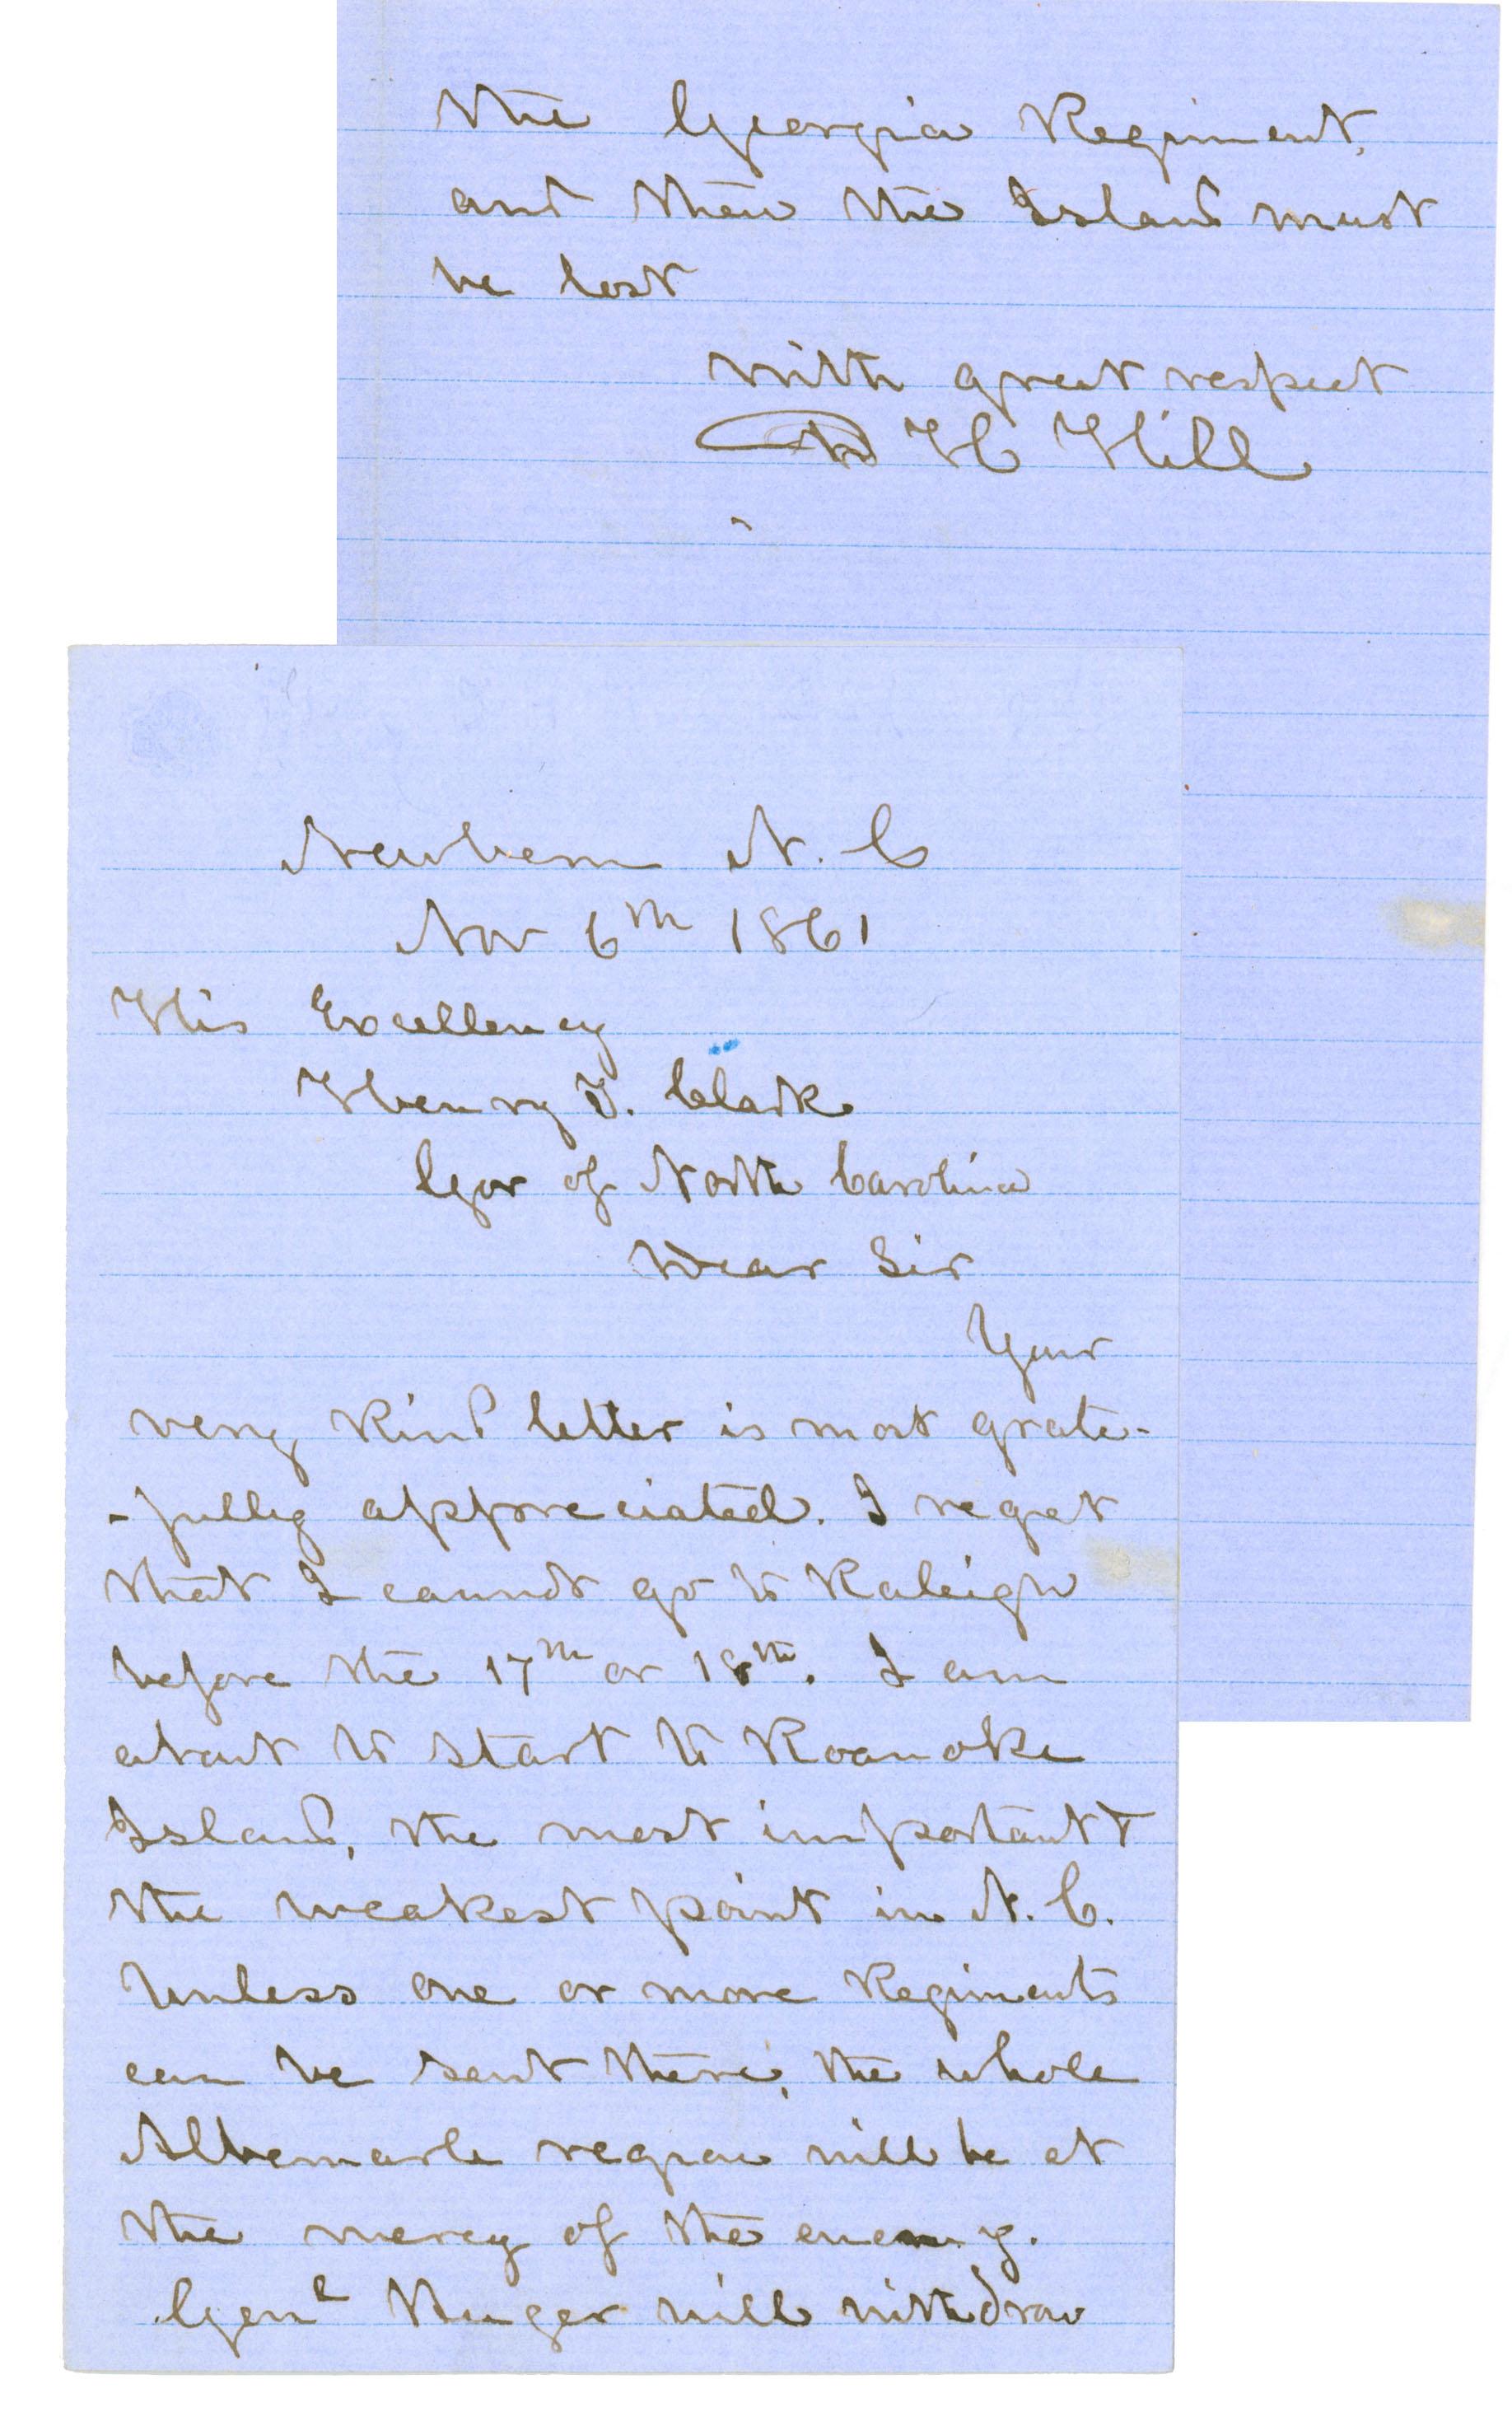 Newbern N. C
Nov 6th 1861
His Excellency
Henry T. Clark
Gov of North Carolina
Dear Sir
Your
very kind letter is most grate-
-fully appreciated. I regret
that I cannot go to Raleigh
before the 17th or 18th. I am
about to start to Roanoke
Island, the most important &
the weakest point in N. C.
Unless one or more Regiments
can be sent there, the whole
Albemarle region will be at
the mercy of the enemy.
Genl Huger will withdraw
the Georgia Regiment,
and then the Island must
be lost
With great respect
D H Hill